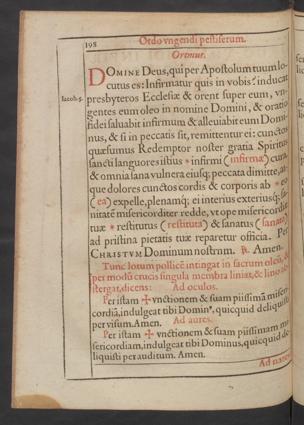 198
Ordo vngendi pestiferum.
Oremus.
DOMINE Deus, qui per Apostolum tuum lo-
cutus es: Infirmatur quis in vobis? inducat
Iacob. 5. presbyteros Ecclesiæ & orent super eum, vn-
gentes eum oleo in nomine Domini, & oratio
fidei saluabit infirmum & alleuiabit eum Domi-
nus, & si in peccatis sit, remittentur ei: cunctos
quæsumus Redemptor noster gratia Spiritus
sancti languores istius * infirmi (infirmæ) cura,
& omnia sana vulnera eiusq; peccata dimitte, at-
que dolores cunctos cordis & corporis ab * eo
(ea) expelle, plenamq; ei interius exteriusq; sa-
nitatē misericorditer redde, vt ope misericordiæ
tuæ * restitutus (restituta) & sanatus (sanata)
ad pristina pietatis tuæ reparetur officia. Per
CHRISTVM Dominum nostrum. ℟. Amen.
Tunc totum pollicē intingat in sacrum oleū, &
per modū crucis singula membra liniat, &
stergat, dicens: Ad oculos.
Per istam ✠ vnctionem & suam piissimā miseri-
cordiā, indulgeat tibi Domin9, quicquid deliquisti
per visum. Amen. Ad aures.
Per istam ✠ vnctionem & suam piissimam mi-
sericordiam, indulgeat tibi Dominus, quicquid de-
liquisti per auditum. Amen.
Ad nares